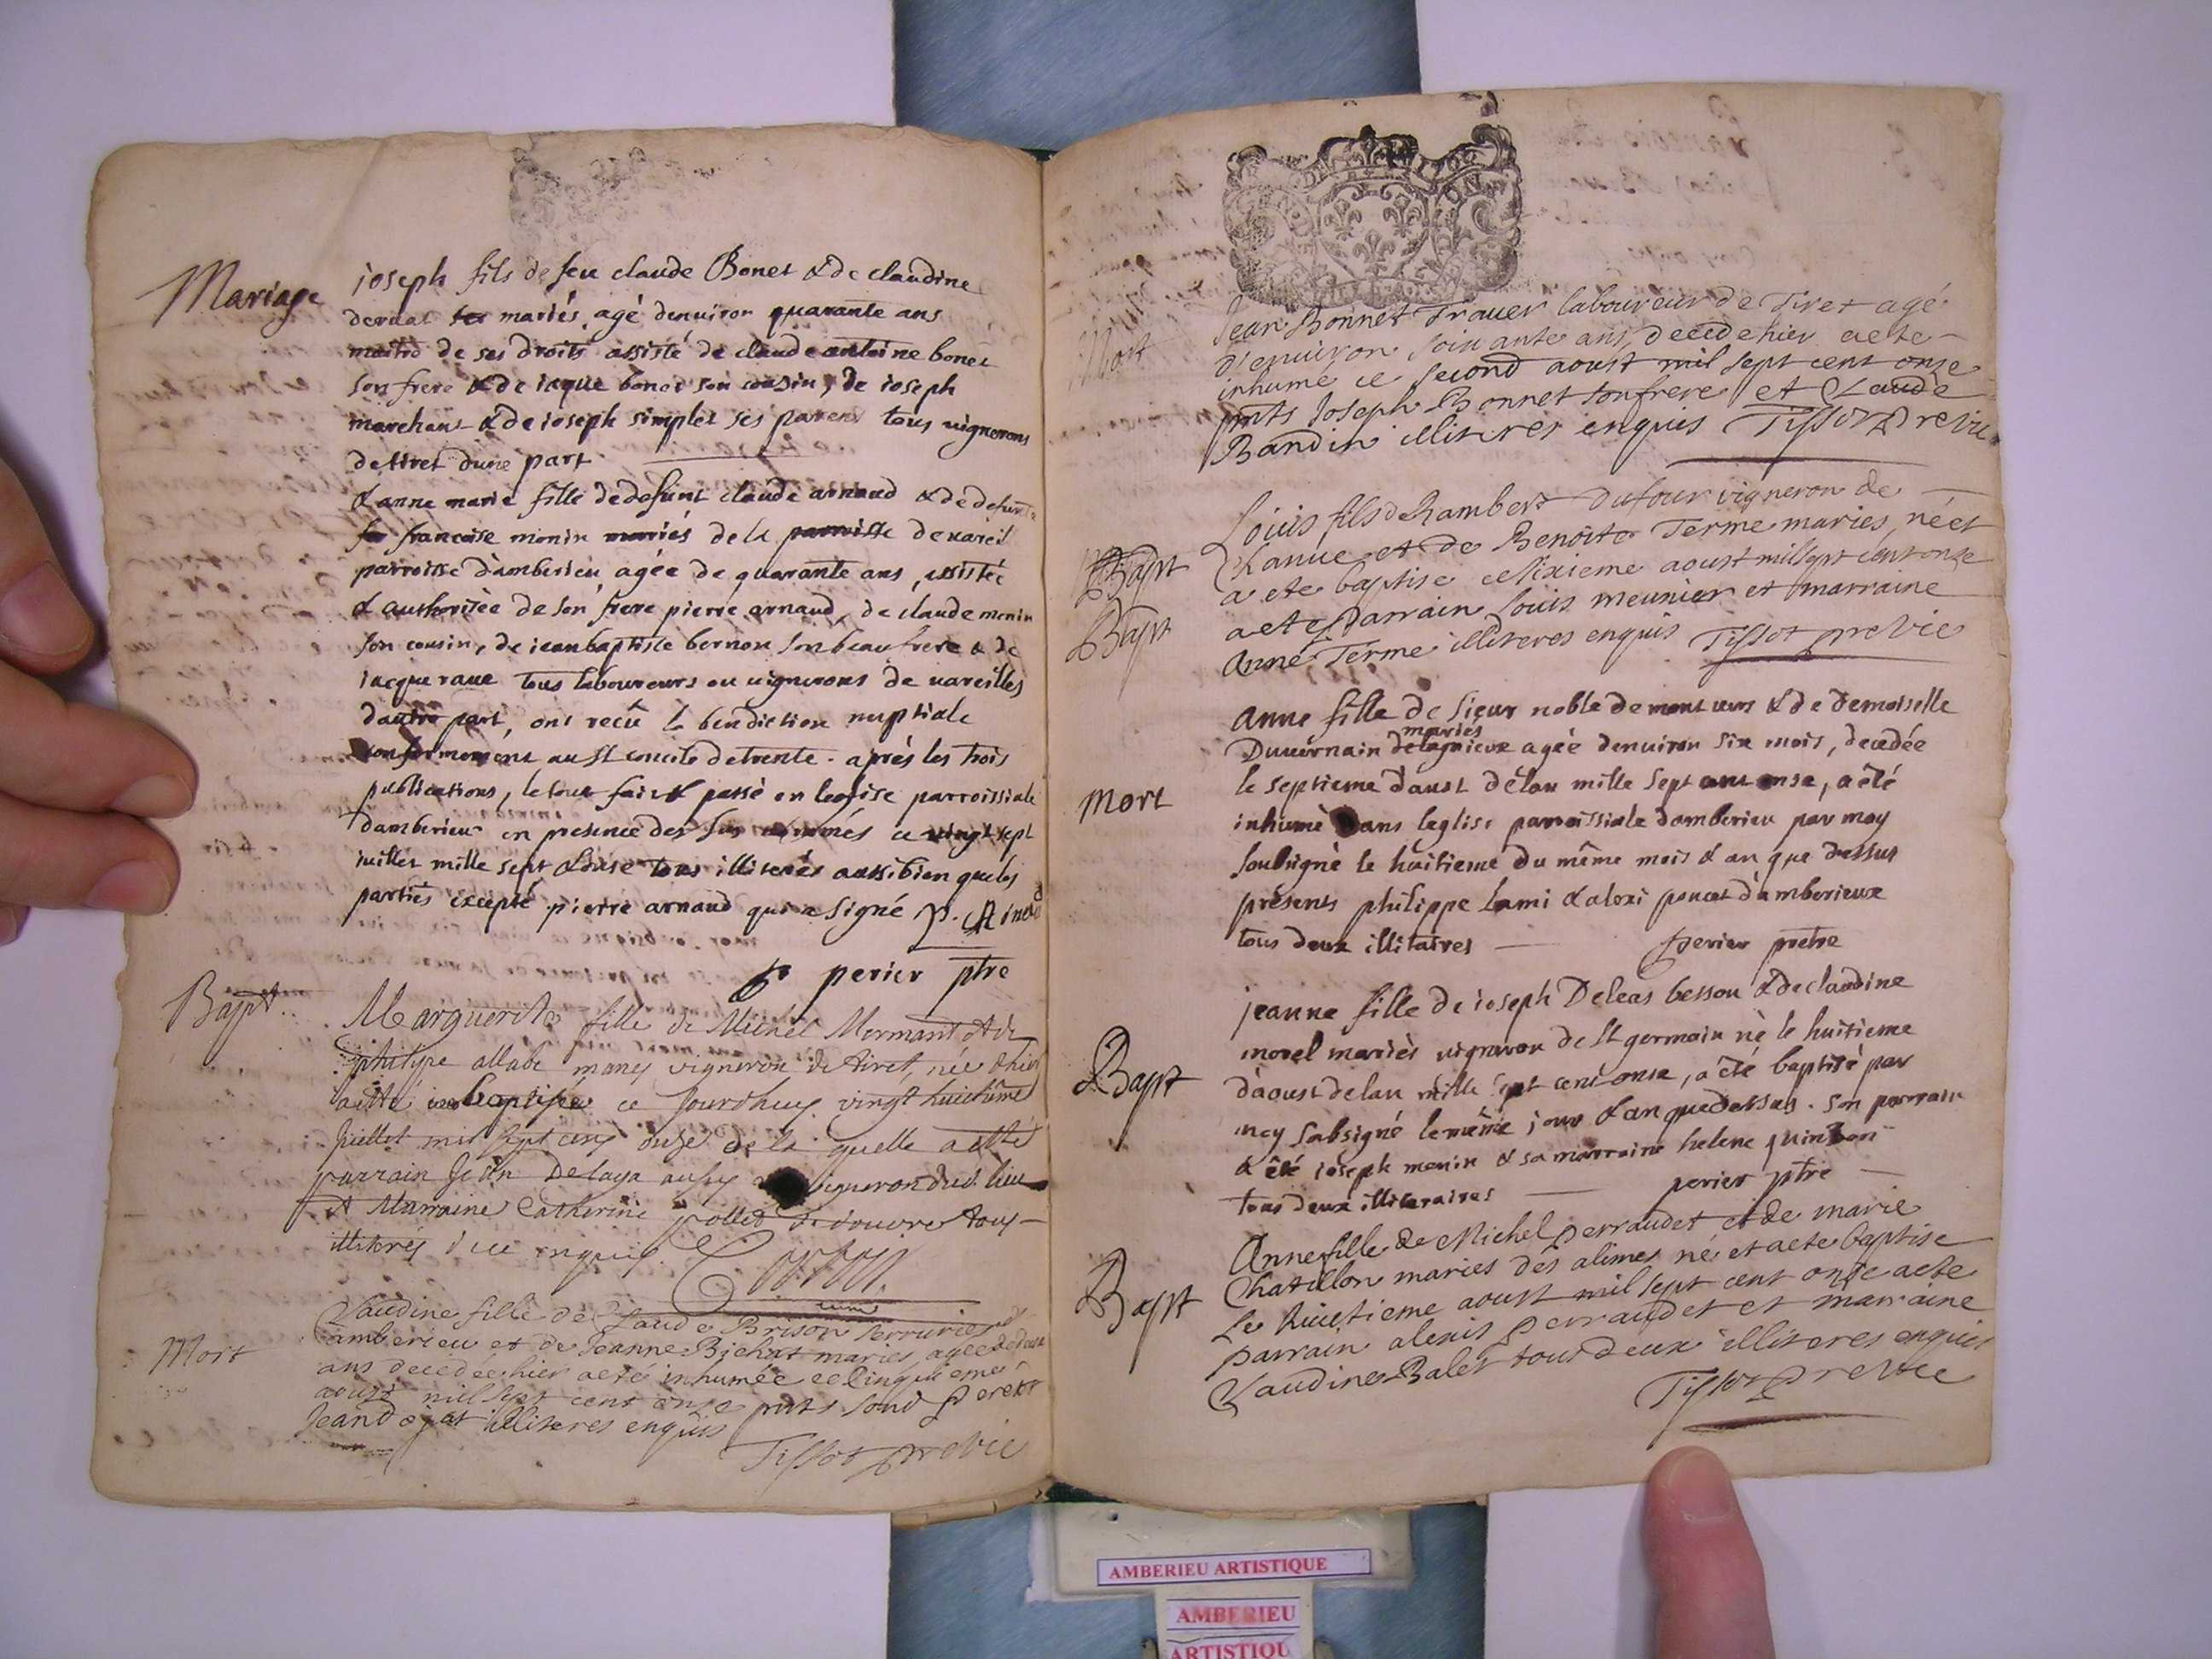 Mariage
joseph fils de feu claude Bonet & de claudine
dernat mariés, agé denuiron quarante ans
maitre de ses droits assisté de claude antoine bonet
son frere & de iaque bonet son cousin, de ioseph
marchant & de ioseph simplet ses parens tous vignerons
de tiret dune part
& anne marie fille de defunt claude arnaud & de defunte
francoise monin mariés de la parroisse de vareil
parroisse d'amberieu agée de quarante ans, assistée
& authorisée de son frere pierre arnaud, de claude monin
son cousin, de iean baptiste bernon son beau frere & de
iacque raue tous laboureurs ou vignerons de uareilles
dautre part, ont recû la benediction nuptiale
conformement au St concile de trente. aprés les trois
publications, le tout fait & passé en leglise parroissiale
damberieu en presence des sus nommés ce vingt sept
iuillet mille sept & onse tous illiterés aussi bien que les
parties excepté pierre arnaud qui a signé P. Arnaud
perier ptre
Bapt.
Marguerite fille de Michel Mermant & de
philipe allabe mariés vigneron de tiret, née d'hier
a été baptisée ce jourdhuy vingt huictième
Juillet mil sept cens onze de la quelle a esté
parrain Jean Delaga aussy vigneron dud. lieu
& Marraine Catherine pollet de douvre tous
illiterés de ce enquis.
Mort
Claudine fille de Claude Brison serrurier d'
amberieu et de Jeanne Bichat maries, agée de deux
ans decedée hier a eté inhumée ce cinquieme
aoust mil sept cens onze pnts Perret
Jean illiteres enquis
Tissot pre vic
Mort
Jean Bonnet Trauer laboureur de Tiret agé
d'enuiron soixante ans, decede hier a ete
inhumé ce second aoust mil sept cent onze
pnts Joseph Bonnet son frere et Claude
Bandin illiteres enquis Tissot pre vic
Bapt
Bapt
Louis fils de Lambert Dufour vigneron de
Chauue et de Benoite Terme maries, né et
a ete baptise ce sixieme aoust mil sept cent onze
a ete Parrain Louis meunier et marraine
Anne Terme illiteres enquis Tissot pre vic
mort
anne fille de sieur noble de montuers & de demoiselle
mariés
Duuernain de lagnieux agée denuiron six mois, decedée
le septieme d'aoust de lan mille sept cent onse, a été
inhumé dans leglise parroissiale damberieu par moy
soubsigné le huitieme du même mois & an que dessus
présents philippe lami & alexi poncet damberieux
tous deux illitaires perier pretre
Bapt
jeanne fille de ioseph Deleas besson & de claudine
morel mariés vigneron de St germain né le huitieme
d'aoust de lan mille sept cent onse, a été baptisé par
moy sabsigné le même jour & an que dessus. son parrain
a été ioseph monin & sa marraine helene quinson
tous deux illiteraires perier ptre
Bapt
Anne fille de Michel perraudet et de marie
Chatillon maries des alimes né et a ete baptise
Le huictieme aoust mil sept cent onze a ete
parrain alexis perraudet et marraine
Claudine Balet tous deux illiteres enquis
Tissot pre vic
AMBERIEU ARTISTIQUE
AMBERIEU
ARTISTIQU